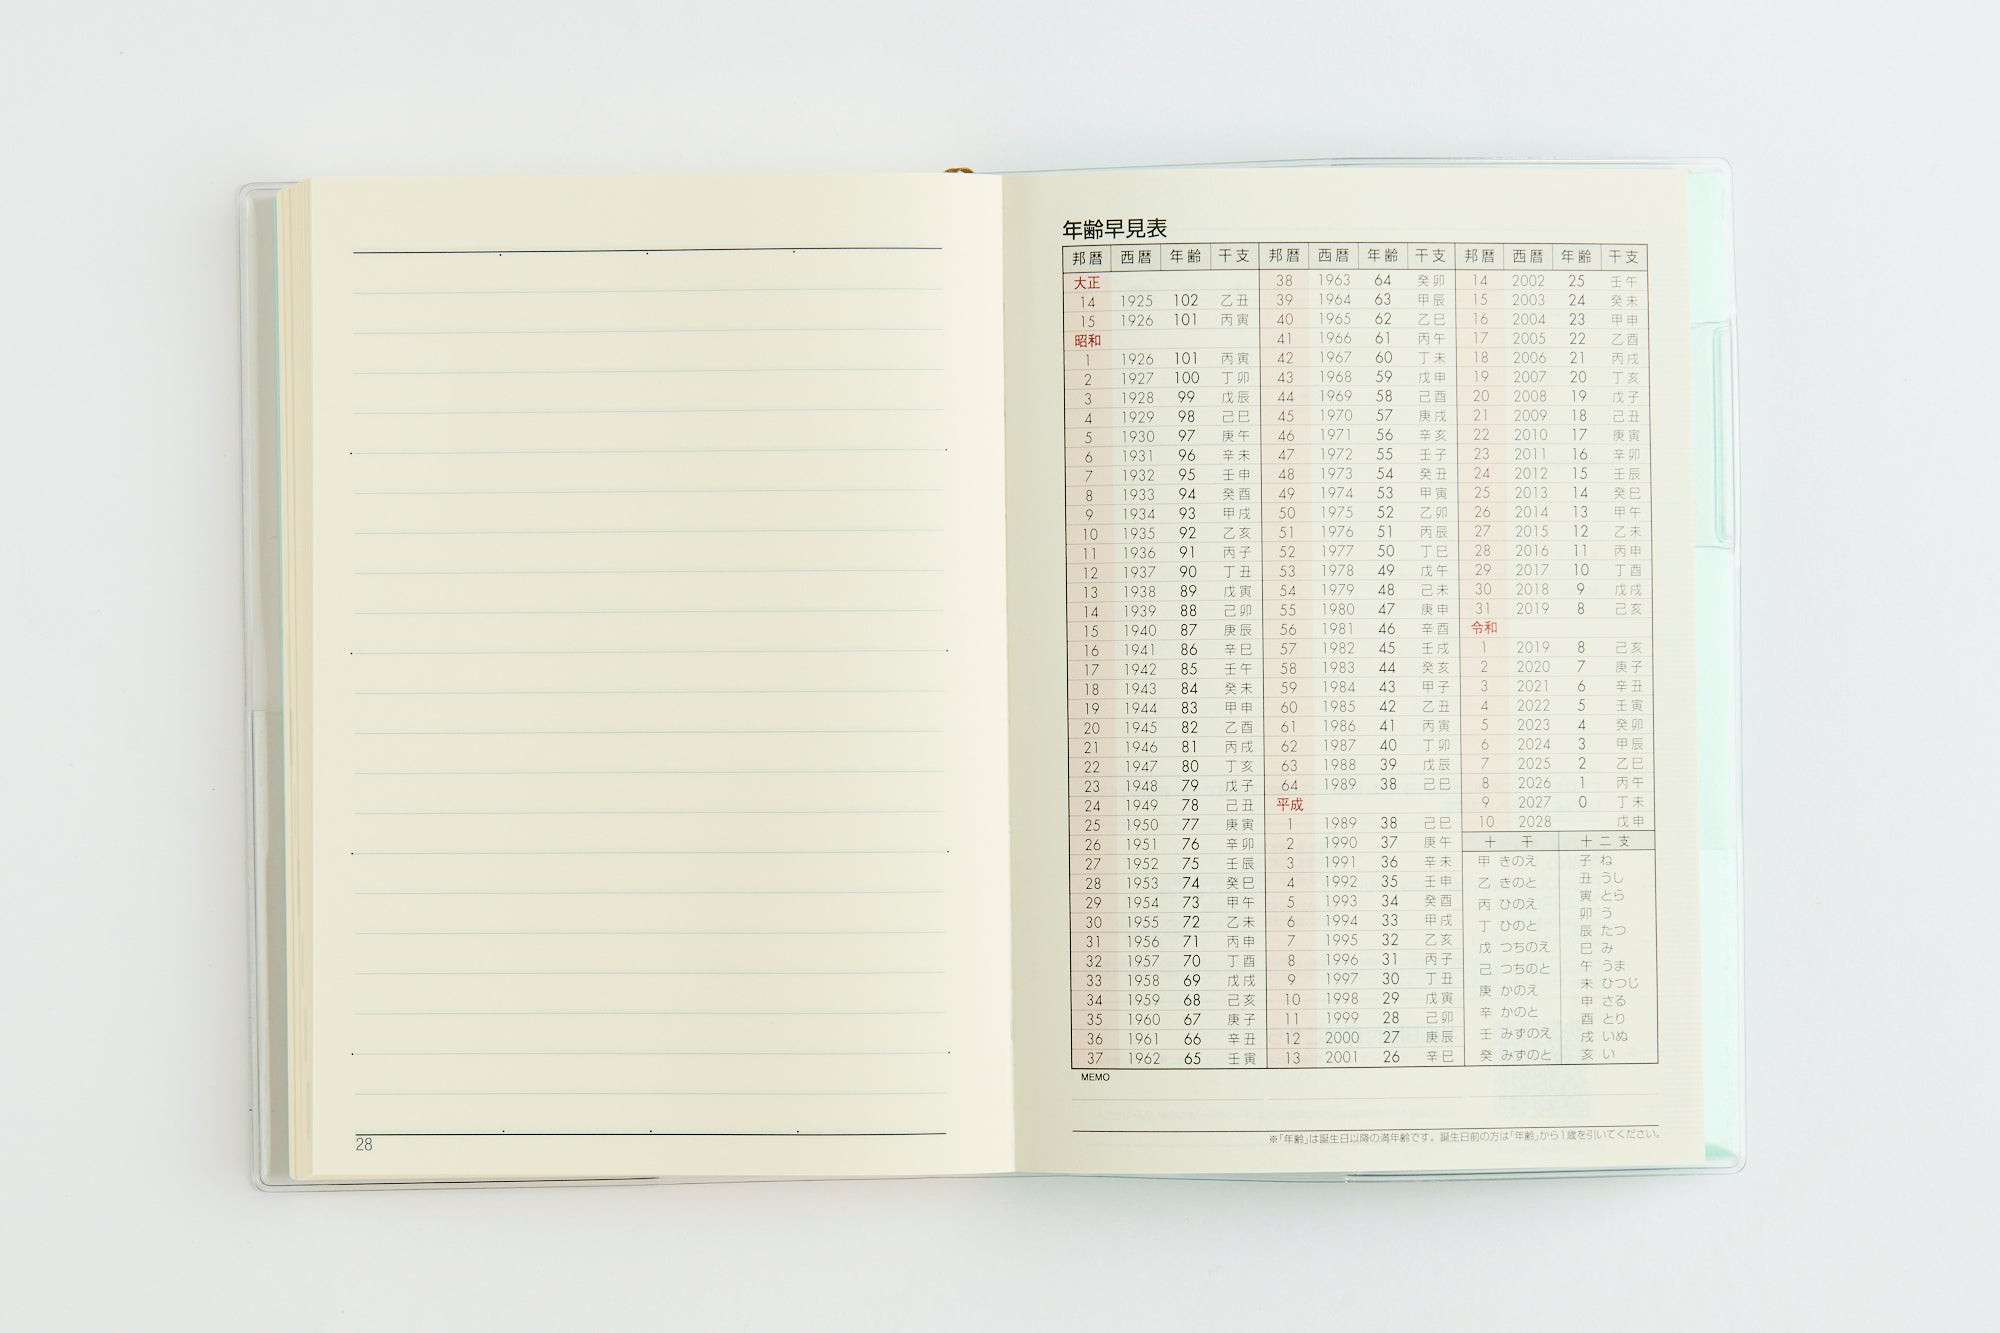 28
年齢早見表
邦暦 西暦 年齢 干支 邦暦 西暦 年齢 干支 邦暦 西暦 年齢 干支
大正 38 1963 64 癸卯 14 2002 25 壬午
14 1925 102 乙丑 39 1964 63 甲辰 15 2003 24 癸未
15 1926 101 丙寅 40 1965 62 乙巳 16 2004 23 甲申
昭和 41 1966 61 丙午 17 2005 22 乙酉
1 1926 101 丙寅 42 1967 60 丁未 18 2006 21 丙戌
2 1927 100 丁卯 43 1968 59 戊申 19 2007 20 丁亥
3 1928 99 戊辰 44 1969 58 己酉 20 2008 19 戊子
4 1929 98 己巳 45 1970 57 庚戌 21 2009 18 己丑
5 1930 97 庚午 46 1971 56 辛亥 22 2010 17 庚寅
6 1931 96 辛未 47 1972 55 壬子 23 2011 16 辛卯
7 1932 95 壬申 48 1973 54 癸丑 24 2012 15 壬辰
8 1933 94 癸酉 49 1974 53 甲寅 25 2013 14 癸巳
9 1934 93 甲戌 50 1975 52 乙卯 26 2014 13 甲午
10 1935 92 乙亥 51 1976 51 丙辰 27 2015 12 乙未
11 1936 91 丙子 52 1977 50 丁巳 28 2016 11 丙申
12 1937 90 丁丑 53 1978 49 戊午 29 2017 10 丁酉
13 1938 89 戊寅 54 1979 48 己未 30 2018 9 戊戌
14 1939 88 己卯 55 1980 47 庚申 31 2019 8 己亥
15 1940 87 庚辰 56 1981 46 辛酉 令和
16 1941 86 辛巳 57 1982 45 壬戌 1 2019 8 己亥
17 1942 85 壬午 58 1983 44 癸亥 2 2020 7 庚子
18 1943 84 癸未 59 1984 43 甲子 3 2021 6 辛丑
19 1944 83 甲申 60 1985 42 乙丑 4 2022 5 壬寅
20 1945 82 乙酉 61 1986 41 丙寅 5 2023 4 癸卯
21 1946 81 丙戌 62 1987 40 丁卯 6 2024 3 甲辰
22 1947 80 丁亥 63 1988 39 戊辰 7 2025 2 乙巳
23 1948 79 戊子 64 1989 38 己巳 8 2026 1 丙午
24 1949 78 己丑 平成 9 2027 0 丁未
25 1950 77 庚寅 1 1989 38 己巳 10 2028 戊申
26 1951 76 辛卯 2 1990 37 庚午 十干 十二支
27 1952 75 壬辰 3 1991 36 辛未
28 1953 74 癸巳 4 1992 35 壬申
29 1954 73 甲午 5 1993 34 癸酉
30 1955 72 乙未 6 1994 33 甲戌
31 1956 71 丙申 7 1995 32 乙亥
32 1957 70 丁酉 8 1996 31 丙子
33 1958 69 戊戌 9 1997 30 丁丑
34 1959 68 己亥 10 1998 29 戊寅
35 1960 67 庚子 11 1999 28 己卯
36 1961 66 辛丑 12 2000 27 庚辰
37 1962 65 壬寅 13 2001 26 辛巳
甲 きのえ
乙 きのと
丙 ひのえ
丁 ひのと
戊 つちのえ
己 つちのと
庚 かのえ
辛 かのと
壬 みずのえ
癸 みずのと
子 ね
丑 うし
寅 とら
卯 う
辰 たつ
巳 み
午 うま
未 ひつじ
申 さる
酉 とり
戌 いぬ
亥 い
MEMO
※「年齢」は誕生日以降の満年齢です。誕生日前の方は「年齢」から1歳を引いてください。